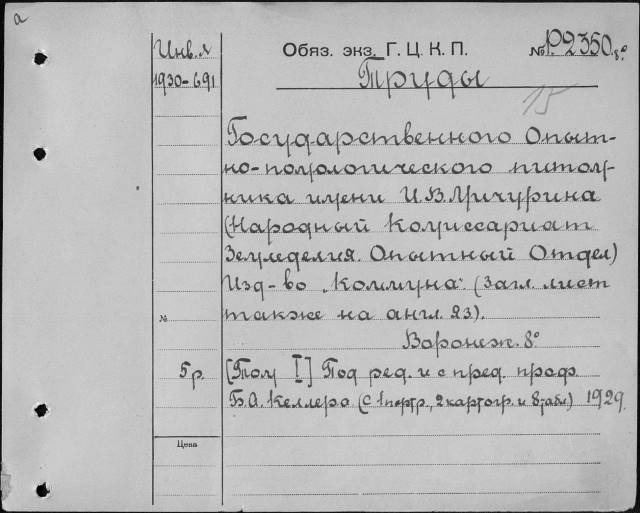 а
Инв. л
1930-691
Обяз. экз. Г. Ц. К. П.
№ P2350 8°
Труды
15
Государственного Опыт-
но-помологического питом-
ника имени И.В. Мичурина
(Народный Комиссариат
Земледелия. Опытный Отдел)
Изд-во „Коммуна". (Загл. лист
также на англ. яз).
№
Воронеж. 8°
5 р.
[Том I] Под ред. и с пред. проф.
Б.А. Келлера (с 1 портр., 2 картогр. и 8 табл.) 1929.
Цена